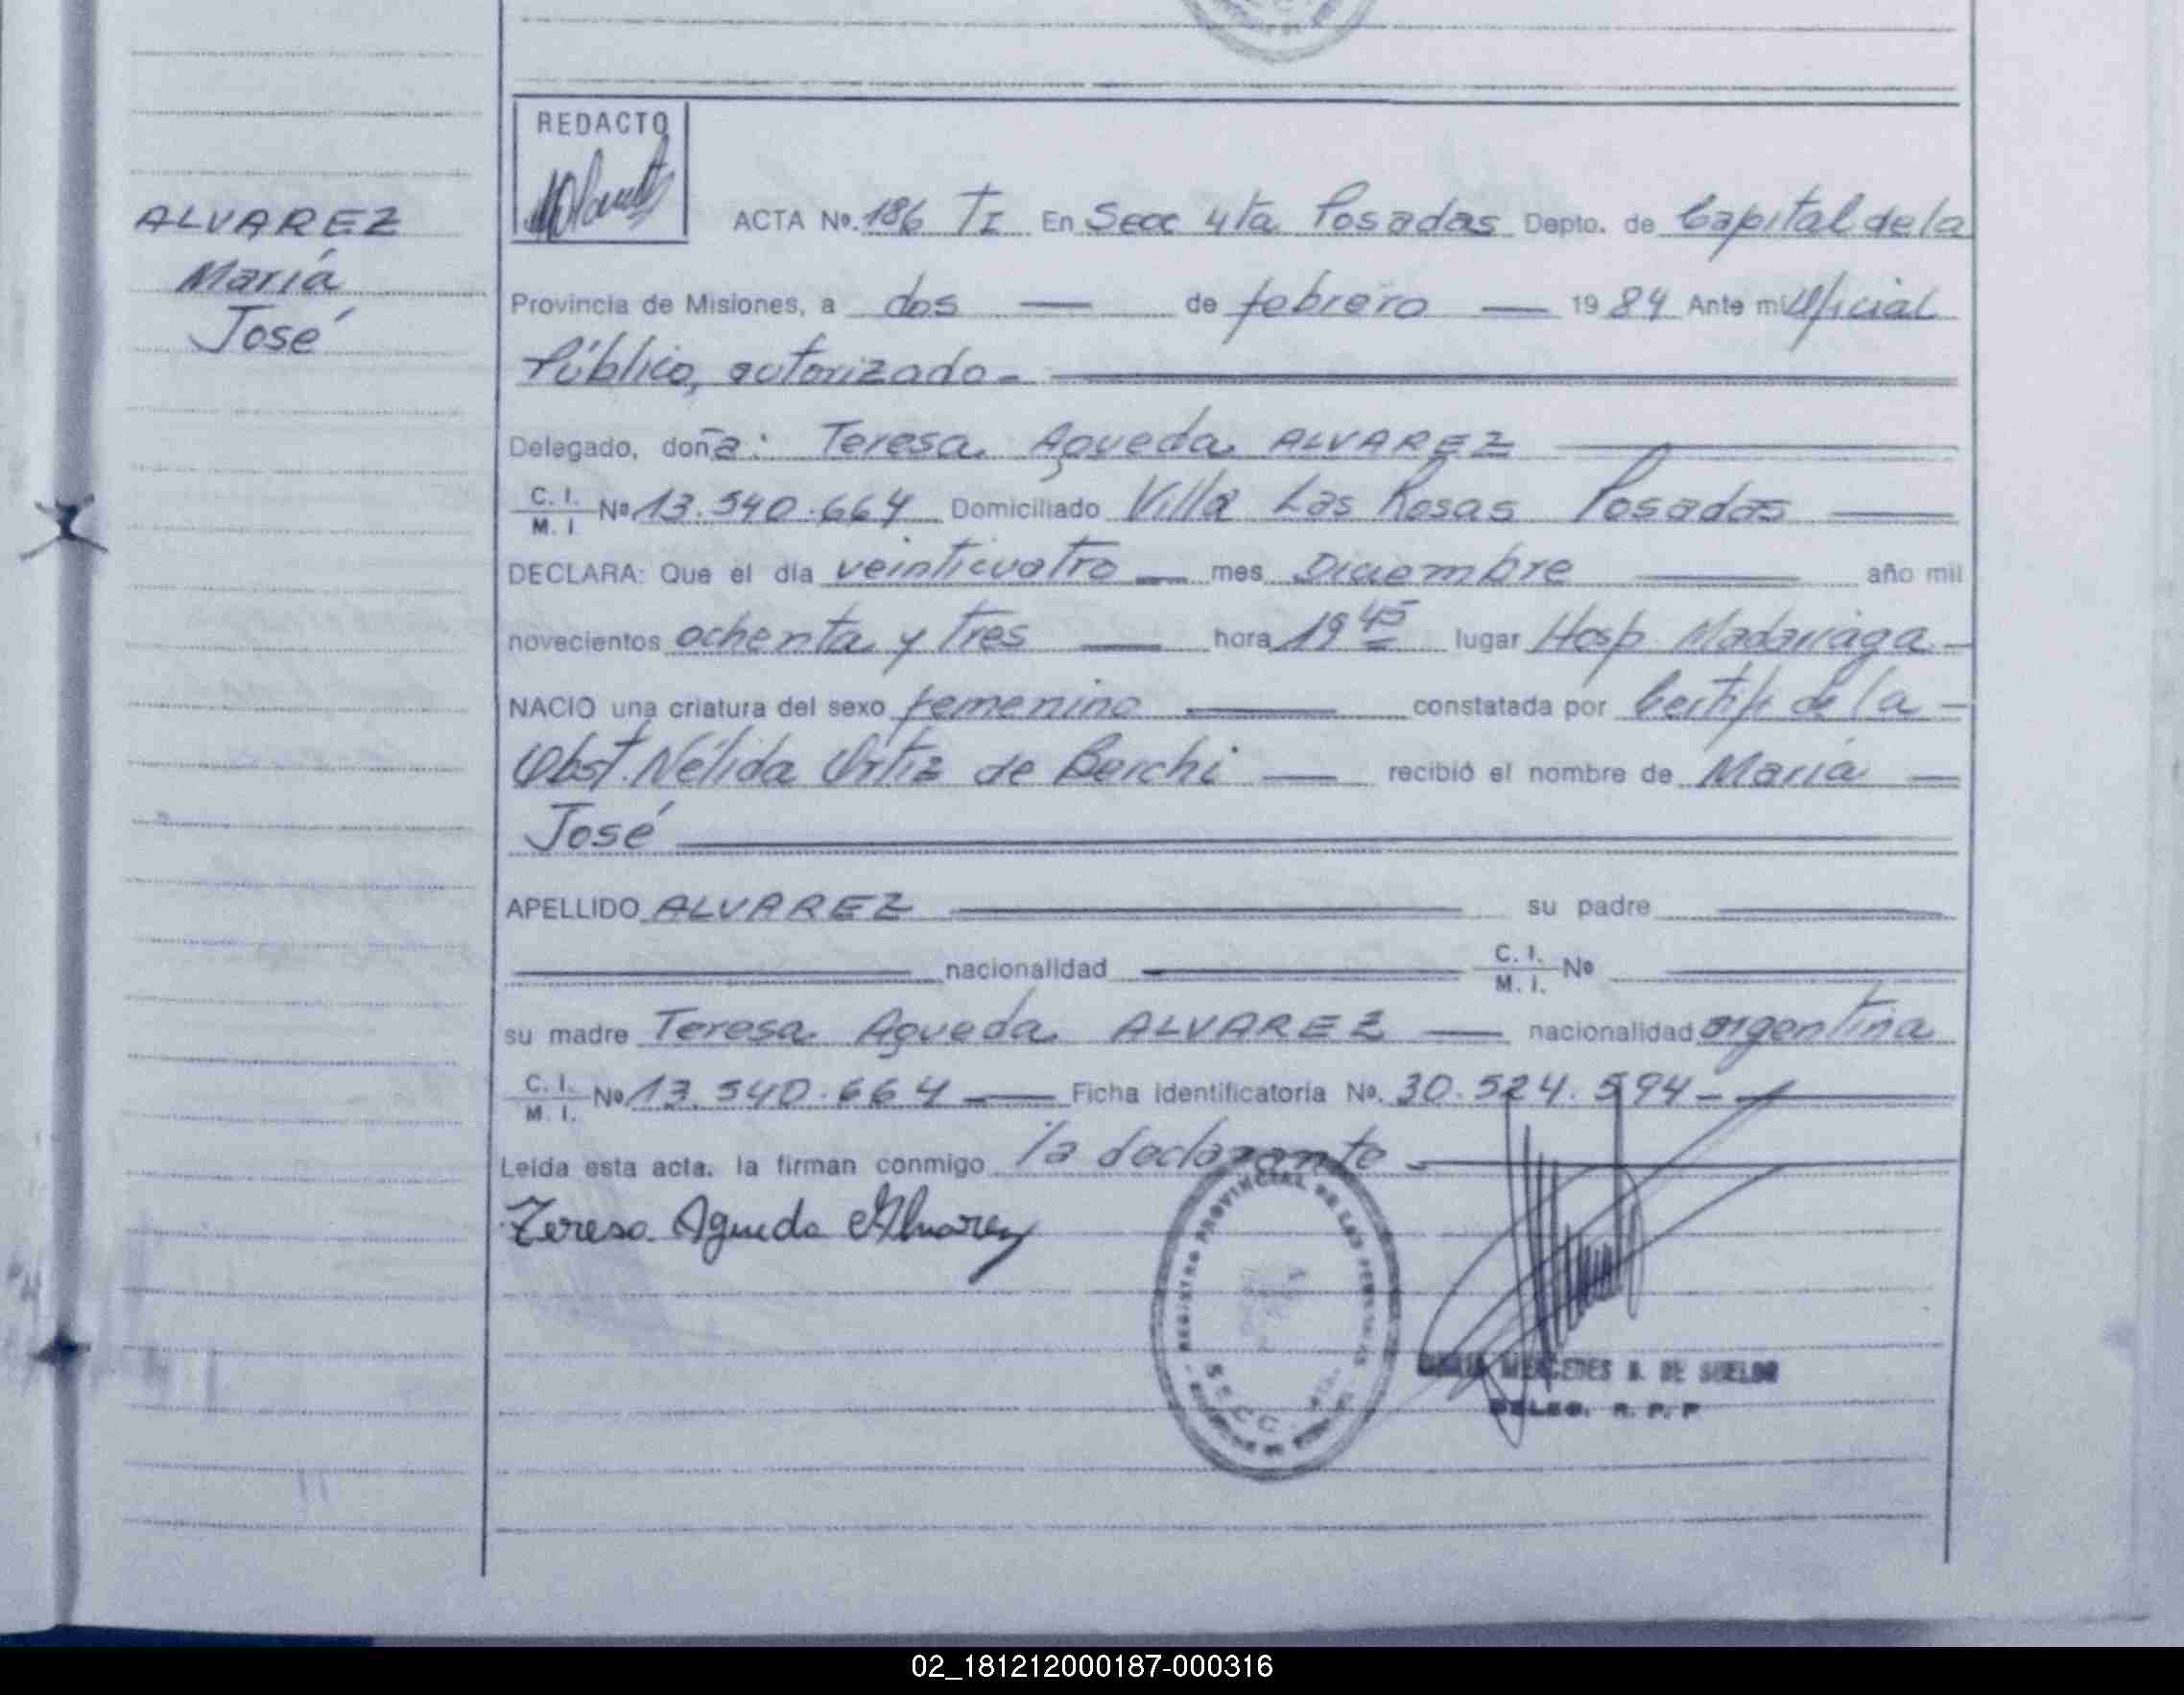 REDACTO
ALVAREZ
María
José
ACTA Nº. 186 TI En Secc 4ta Posadas Depto. de Capital de la
Provincia de Misiones, a dos — de febrero — 1984 Ante mi Oficial
Público, autorizado.-
Delegado, doña: Teresa Agueda ALVAREZ
C. I. / M. I. Nº 13.540.664 Domiciliado Villa Las Rosas Posadas —
DECLARA: Que el día veinticuatro — mes Diciembre — año mil
novecientos ochenta y tres — hora 19 45 lugar Hosp Madariaga -
NACIO una criatura del sexo femenino — constatada por Certif de la -
Obst. Nélida Ortiz de Berchi — recibió el nombre de María —
José
APELLIDO ALVAREZ — su padre —
— nacionalidad — C. I. / M. I. Nº —
su madre Teresa Agueda ALVAREZ — nacionalidad argentina
C. I. / M. I. Nº 13.540.664 — Ficha identificatoria Nº. 30.524.594 -
Leída esta acta, la firman conmigo la declarante
Teresa Agueda Alvarez
REGISTRO PROVINCIAL DE LAS PERSONAS
SECC. 4ta.
MARIA MERCEDES B. DE SUELDO
DELEG. R. P. P
02_181212000187-000316